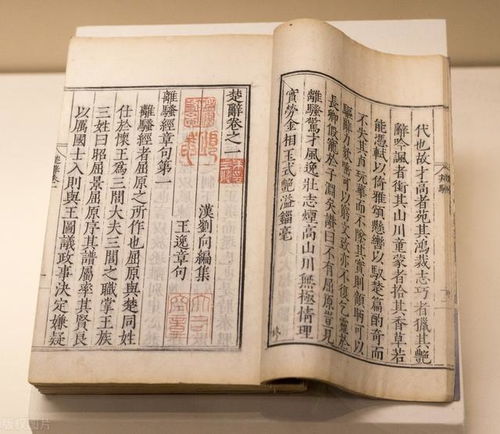 代也故才高者苑其鴻裁志巧者獵其艷
辭吟諷者銜其山川童蒙者拾其香草若
能憑軾以倚雅頌懸轡以馭楚篇酌奇而
不失其貞玩華而不墜其實則顧盻可以
驅辭力欬唾可以窮文致亦不復乞靈於
長卿假寵於子淵矣讚曰不有屈原豈見
離騷驚才風逸壯志煙高山川無極情理
實勞金相玉式艷溢錙毫
楚辭卷之一
漢劉向編集
王逸章句
離騷經章句第一
離騷經者屈原之所作也屈原與楚同姓
仕於懷王為三閭大夫三閭之職掌王族
三姓曰昭屈景屈原序其譜屬率其賢良
以厲國士入則與王圖議政事決定嫌疑
楚辭卷一
版权图片